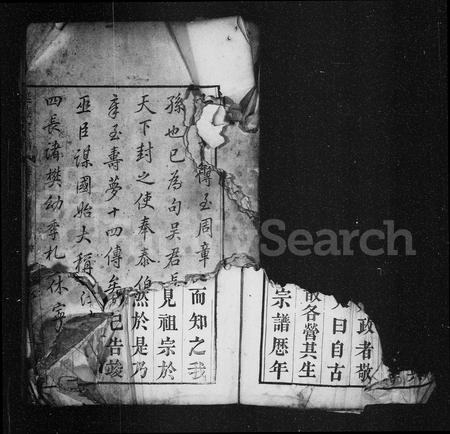 政者敬
曰自古
各營其生
宗譜歷年
至周章
孫也已為句吳君
天下封之使奉泰伯
章至壽夢十四傳
巫臣謀國始大稱
四長諸樊幼季札
而知之我
見祖宗於
然於是乃
已告竣
Search